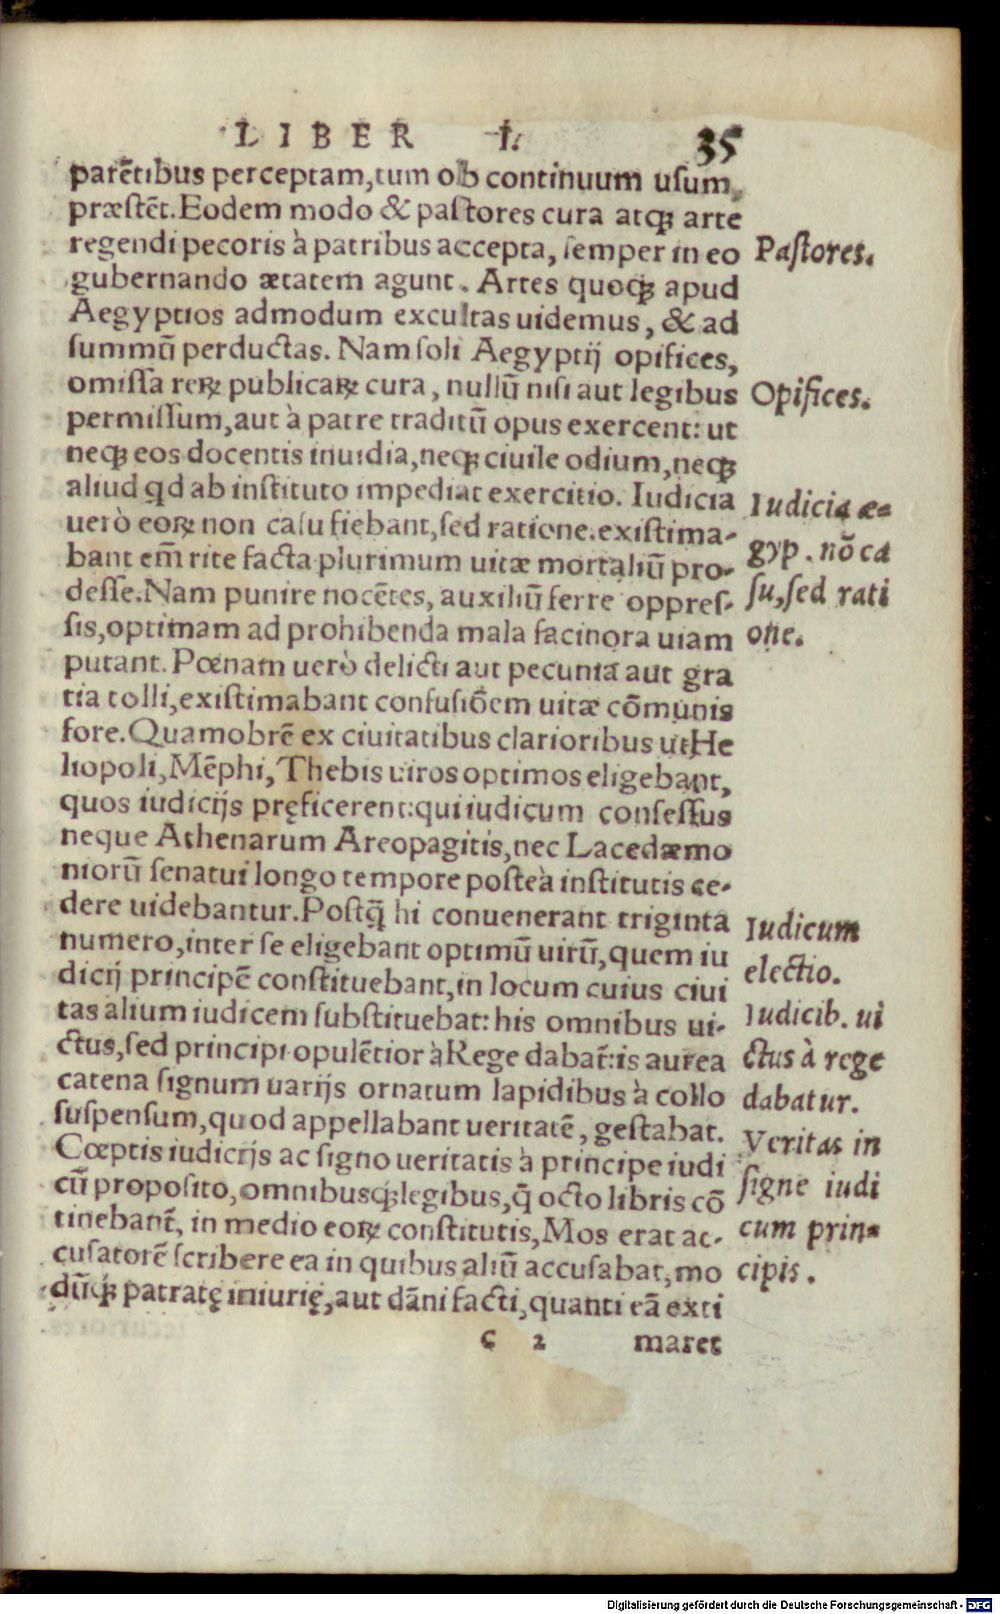 LIBER I. 35
parẽtibus perceptam, tum ob continuum usum,
præstẽt. Eodem modo & pastores cura atqꝫ arte
regendi pecoris à patribus accepta, semper in eo
gubernando ætatem agunt. Artes quoqꝫ apud
Aegyptios admodum excultas uidemus, & ad
summũ perductas. Nam soli Aegyptij opifices,
omissa reꝝ publicaꝝ cura, nullũ nisi aut legibus
permissum, aut à patre traditũ opus exercent: ut
neqꝫ eos docentis inuidia, neqꝫ ciuile odium, neqꝫ
aliud qd ab instituto impediat exercitio. Iudicia
uerò eoꝝ non casu fiebant, sed ratione. existima-
bant em̃ rite facta plurimum uitæ mortaliũ pro-
desse. Nam punire nocẽtes, auxiliũ ferre oppres-
sis, optimam ad prohibenda mala facinora uiam
putant. Pœnam uerò delicti aut pecunia aut gra
tia tolli, existimabant confusiõem uitæ cõmunis
fore. Quamobrẽ ex ciuitatibus clarioribus ut He
liopoli, Mẽphi, Thebis uiros optimos eligebant,
quos iudicijs pręficerent: qui iudicum consessus
neque Athenarum Areopagitis, nec Lacedæmo
niorũ senatui longo tempore posteà institutis ce-
dere uidebantur. Postq̃ hi conuenerant triginta
numero, inter se eligebant optimũ uirũ, quem iu
dicij principẽ constituebant, in locum cuius ciui
tas alium iudicem substituebat: his omnibus ui-
ctus, sed principi opulẽtior à Rege dabat̃: is aurea
catena signum uarijs ornatum lapidibus à collo
suspensum, quod appellabant ueritatẽ, gestabat.
Cœptis iudicijs ac signo ueritatis à principe iudi
cũ proposito, omnibusqꝫ legibus, q̃ octo libris cõ
tinebant̃, in medio eoꝝ constitutis, Mos erat ac-
cusatorẽ scribere ea in quibus aliũ accusabat, mo
dũqꝫ patratę iniurię, aut dãni facti, quanti eã exti
c 2 maret
Pastores.
Opifices.
Iudicia æ=
gyp. nõ ca
su, sed rati
one.
Iudicum
electio.
Iudicib. ui
ctus à rege
dabatur.
Veritas in
signe iudi
cum prin=
cipis.
Digitalisierung gefördert durch die Deutsche Forschungsgemeinschaft - DFG